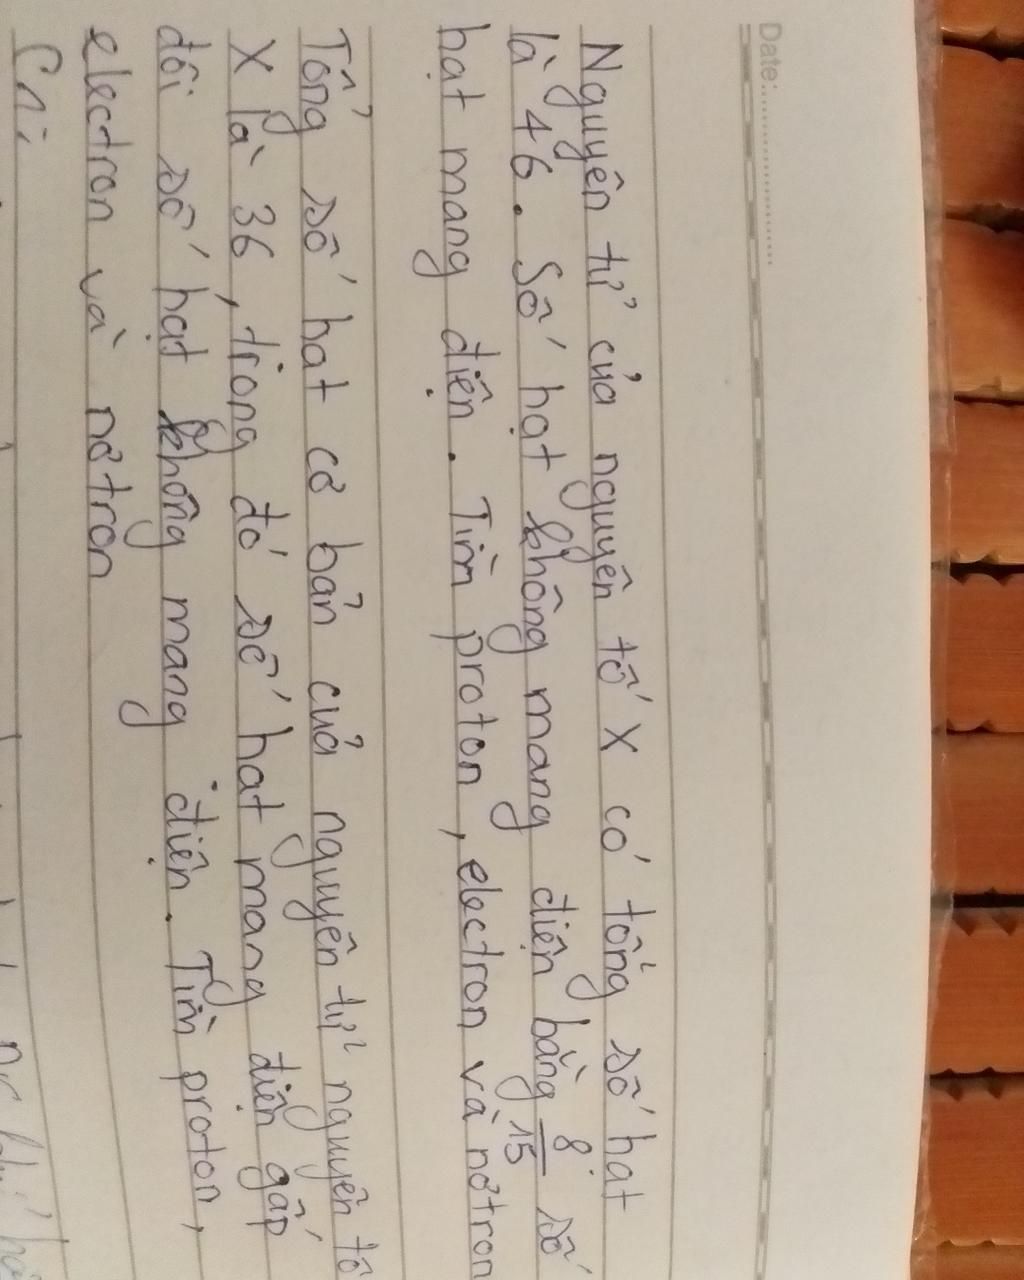 Date:
Nguyên tử của nguyên tố X có tổng số hạt
là 46. Số hạt không mang điện bằng 8/15 số
hạt mang điện. Tìm proton, electron và nơtron
Tổng số hat cơ bản của nguyên tử nguyên tố
X là 36, trong đó số hat mang điện gấp
đôi số hạt không mang điện. Tìm proton,
electron và nơtron